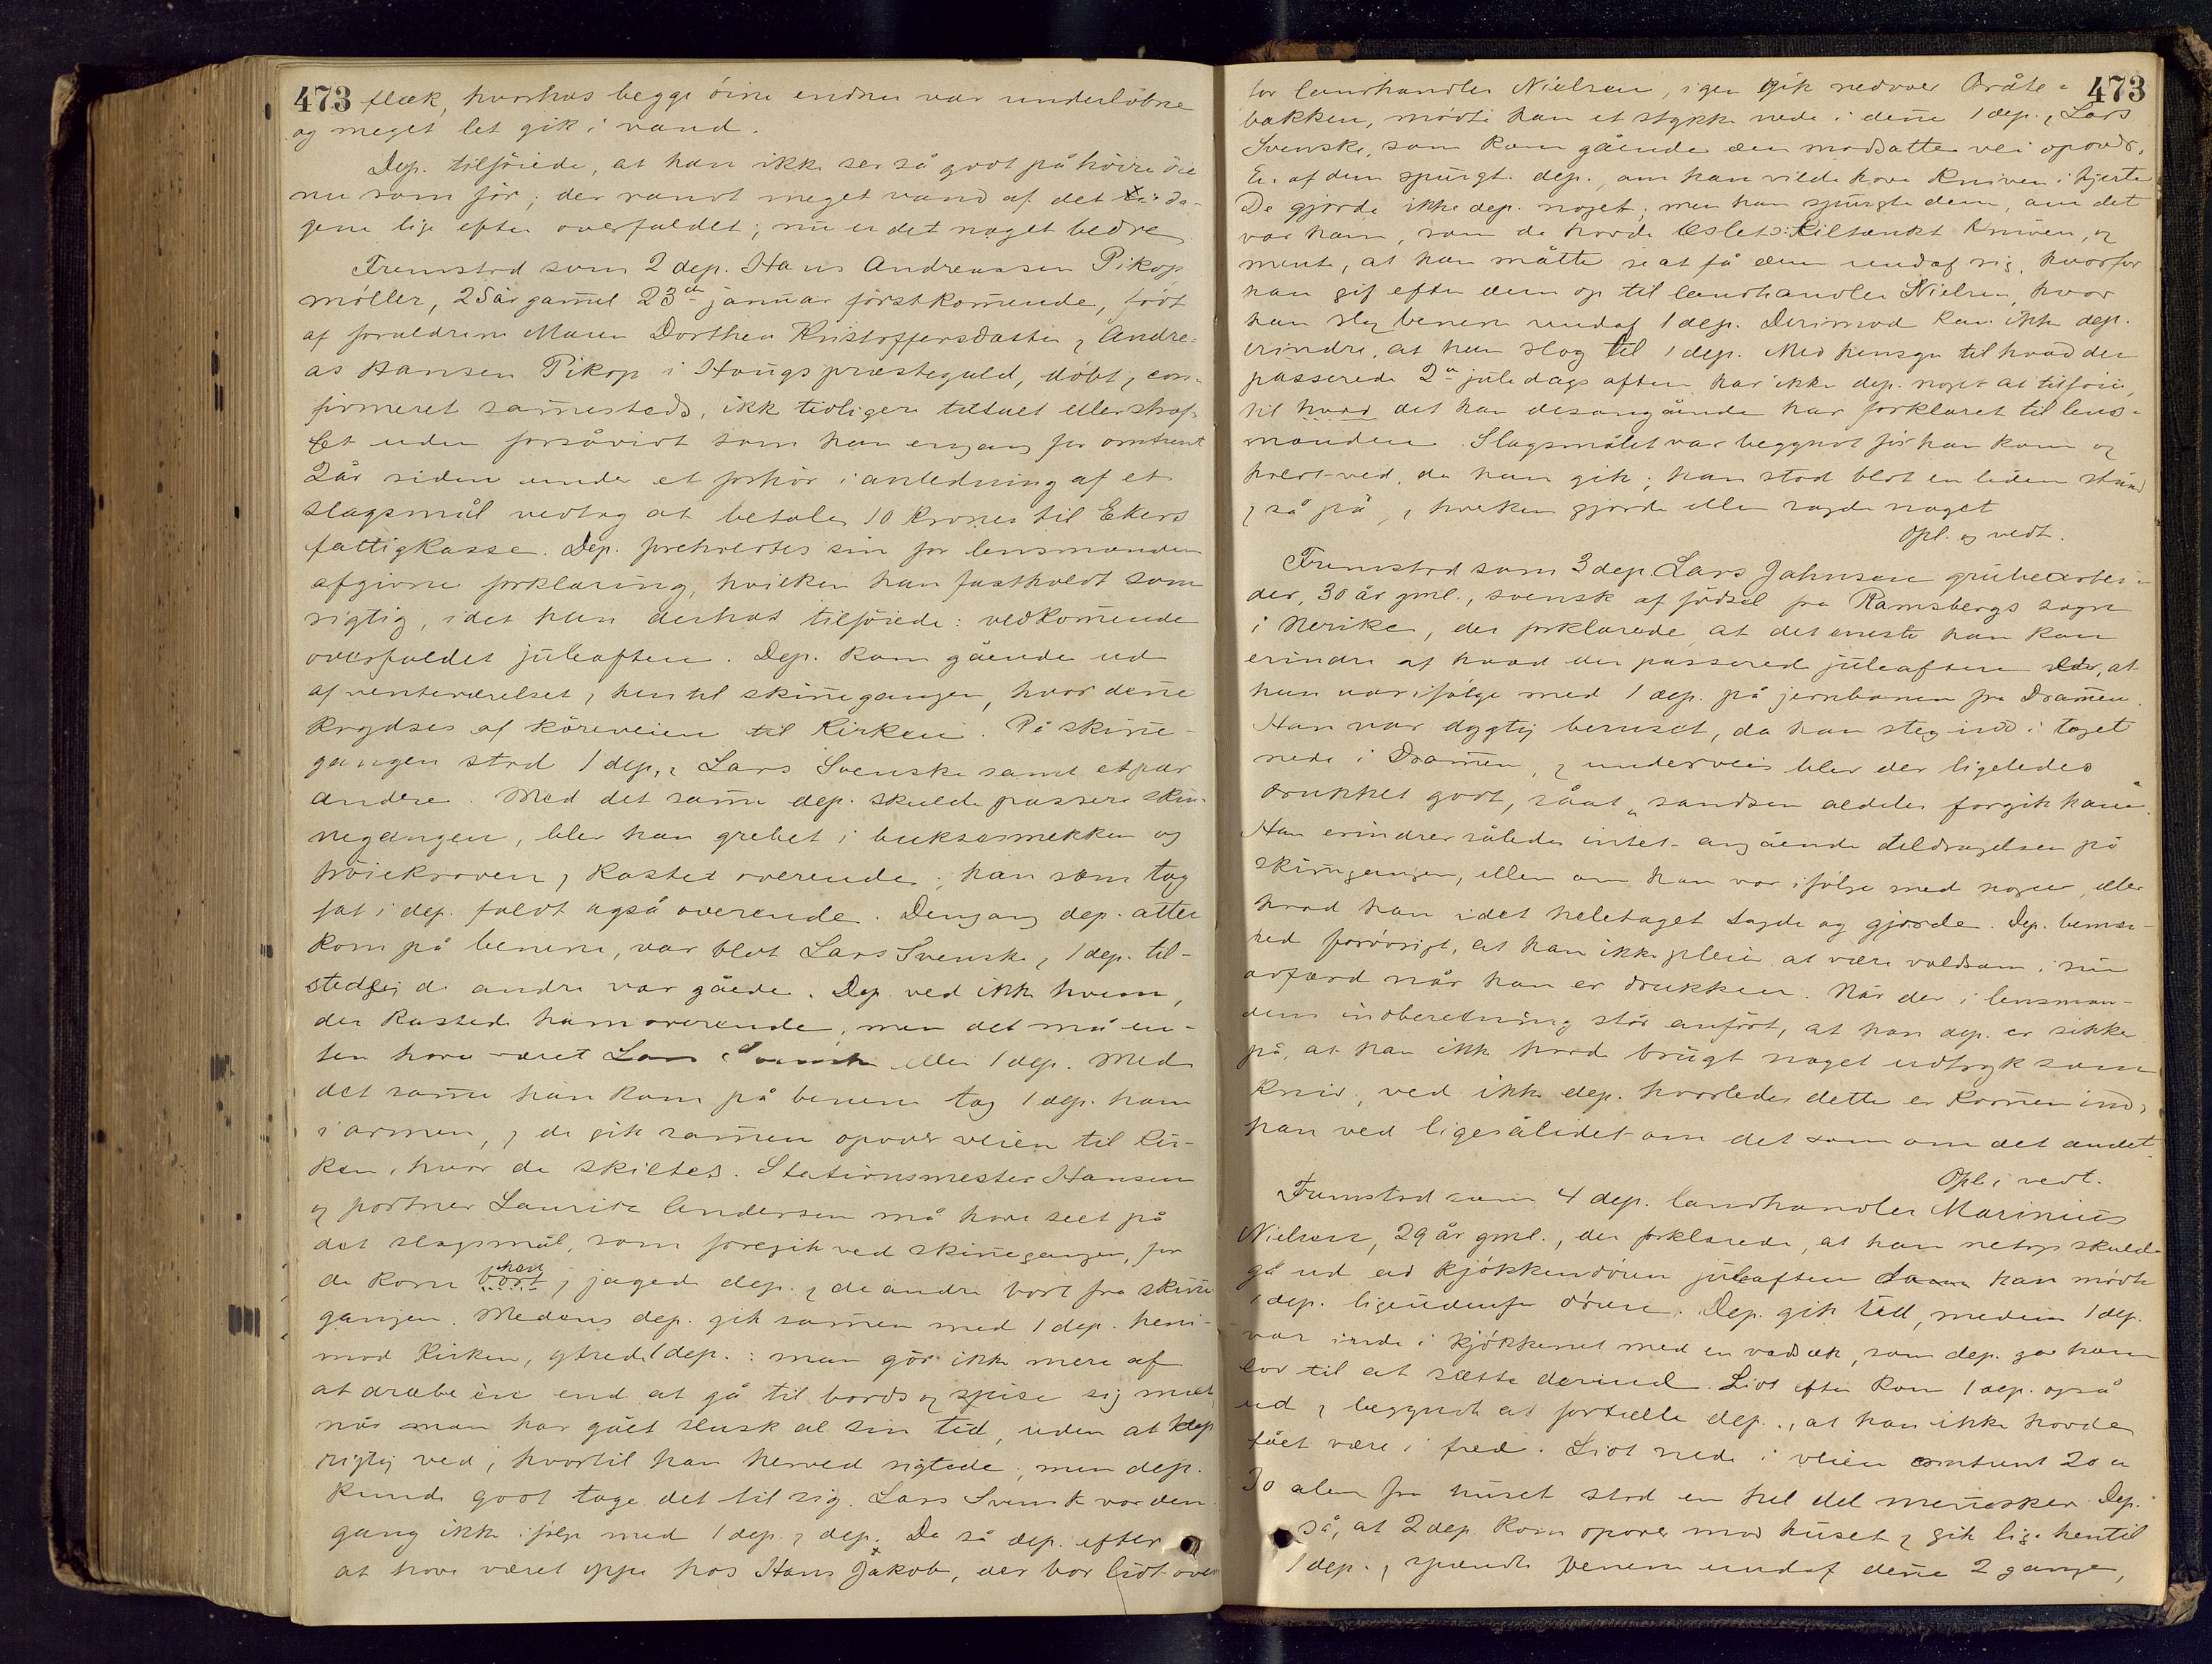 473 flæk, hvorhos begge öine endnu var underløbne
og meget let gik i vand.
Dep. tilföiede, at han ikke ser så godt på höire öie
nu som för; der randt meget vand af det i da-
gene lige efter overfaldet; nu er det noget bedre
Fremstod som 2 dep. Hans Andreassen Pikop,
møller, 25 år gam̄el 23de januar förstkom̄ende, född
af forældrene Maren Dorthea Kristoffersdatter & Andre=
as Hansen Pikop i Hougs præstegjeld, döbt & con-
firmeret sam̄esteds, ikke tidligere tiltalt eller straf-
fet uden forsåvidt som han engang for omtrent
2 år siden under et forhör i anledning af et
slagsmål vedtog at betale 10 kroner til Ekers
fattigkasse. Dep. forholdtes sin for lensmanden
afgivne forklaring, hvilken han fastholdt som
rigtig, idet han derhos tilföiede: vedkom̄ende
overfaldet juleaften. Dep. kom gående ud
af venteværelset & hen til skin̄egangen, hvor den̄e
krydses af köreveien til kirken. På skin̄e-
gangen stod 1 dep. & Lars Svenske samt et par
andre. Med det sam̄e dep. skulde passere skin-
negangen, blev han grebet i buksesmekken og
tröiekraven & kastet overende; han som tog
fat i dep. faldt også overende. Dengang dep. atter
kom på benene, var blot Lars Svenske & 1 dep. til-
stede; de andre var gåede. Dep. ved ikke hvem,
der kastede ham overende, men det må en-
ten have været Lars Svenske eller 1 dep. Med
det sam̄e han kom på benene tog 1 dep. ham
i armen, & de gik sam̄en opover veien til kir-
ken, hvor de skiltes. Stationsmester Hansen
og portner Lauritz Andersen må have seet på
det slagsmål, som foregik ved skin̄egangen, for
de kom han bort & jagede dep. & de andre bort fra skin̄e-
gangen. Medens dep. gik sam̄en med 1 dep. hen i-
mod kirken, ytrede 1 dep.: man gör ikke mere af
at dræbe èn end at gå til bords og spise sig mæt,
når man har gået slusk al sin tid, uden at dep.
rigtig ved, hvortil han herved sigtede; men dep.
kunde godt tage det til sig. Lars Svenske var den-
gang ikke i fölge med 1 dep. & dep. Da så dep. efter
at have været oppe hos Hans Jakob, der bor lidt over
473
for landhandler Nielsen, igen gik nedover Bråte=
bakken, mödte han et stykke nede i den̄e 1 dep. & Lars
Svenske, som kom gående den modsatte vei opover.
En af dem spurgte dep., om han vilde have kniven i hjertet
De gjorde ikke dep. noget; men han spurgte dem, om det
var ham, som de havde tiltænkt kniven, og
mente, at han måtte se at få dem undaf sig, hvorfor
han gik efter dem op til landhandler Nielsen, hvor
han slog benene undaf 1 dep. Derimod kan ikke dep.
erindre, at han slog til 1 dep. Med hensyn til hvad der
passerede 2den juledags aften har ikke dep. noget at tilföie,
til hvad det han desangående har forklaret til lens-
manden. Slagsmålet var begyndt för han kom og
holdt ved, da han gik; han stod blot en liden stund
& så på & hverken gjorde eller sagde noget
Opl. og vedt.
Fremstod som 3 dep. Lars Johnsen grubearbei-
der, 30 år gml., svensk af födsel fra Ramsbergs sogn
i Nerike, der forklarede, at det eneste han kan
erindre af hvad der passerede juleaften er, at
han var i fölge med 1 dep. på jernbanen fra Dram̄en.
Han var dygtig beruset, da han steg ind i toget
nede i Dram̄en, & underveis blev der ligeledes
drukket godt, såat sandsen aldeles forgik ham.
Han erindrer således intet angående tildragelsen på
skin̄egangen, eller om han var i fölge med nogen, eller
hvad han i det heletaget sagde og gjorde. Dep. bemær-
ked forövrigt, at han ikke pleier at være voldsom i sin
adfærd når han er drukken. Når der i lensman-
dens indberetning står anfört, at han dep. er sikker
på, at han ikke havde brugt noget udtryk som
kniv, ved ikke dep. hvorledes dette er kom̄en ind;
han ved ligesålidet om det som om det andet.
Opl. & vedt.
Fremstod som 4 dep. landhandler Marinius
Nielsen, 29 år gml., der forklarede, at han netop skulde
gå ud ad kjökkendören juleaften da han mödte
1 dep. ligeudenfor dören. Dep. gik ud, medens 1 dep.
var inde i kjökkenet med en vadsæk, som dep. gav ham
lov til at sætte derind. Lidt efter kom 1 dep. også
ud & begyndte at fortælle dep., at han ikke havde
fået være i fred. Lidt nede i veien omtrent 20 a
30 alen fra huset stod en hel del men̄esker. Dep.
så, at 2 dep. kom opover mod huset & gik lige hen til
1 dep. & spændte benene undaf den̄e 2 gange,